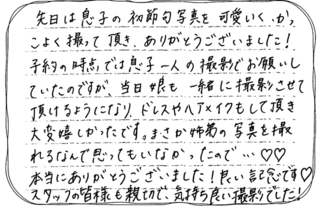 先日は息子の初節句写真を可愛いく、かっ
こよく撮って頂き、ありがとうございました！
予約の時点では息子一人の撮影でお願いし
ていたのですが、当日娘も一緒に撮影させて
頂けるようになり、ドレスやヘアメイクもして頂き
大変嬉しかったです。まさか姉弟の写真を撮
れるなんて思ってもいなかったので…♡♡
本当にありがとうございました！良い記念です♡
スタッフの皆様も親切で、気持ち良い撮影でした！